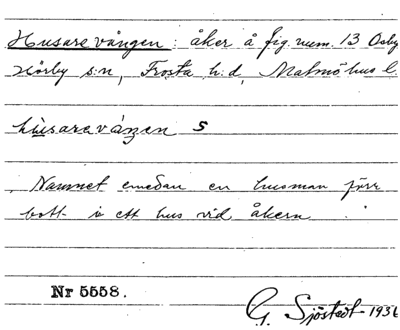 Husarevången: åker å fig. num. 13 Osby
Hörby s:n, Frosta h:d, Malmöhus l.
husarevåŋen S
Namnet emedan en husman förr
bott i ett hus vid åkern.
Nr 5558.
G. Sjöstedt 1936